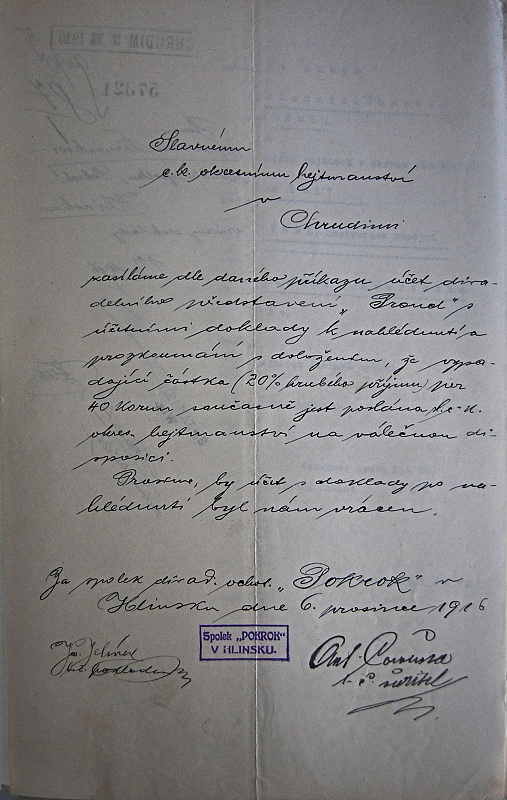 Slavnému
c. k. okresnímu hejtmanství
v
Chrudimi
zasíláme dle daného příkazu účet diva-
delního představení „Proud“ s
účetními doklady k nahlédnutí a
prozkoumání s doložením, že vypa-
dající částka (20% hrubého příjmu) per
40 Korun současně jest poslána c. k.
okres. hejtmanství na válečnou di-
sposici.
Prosíme, by účet s doklady po na-
hlédnutí byl nám vrácen.
Za spolek divad. ochot. „Pokrok“ v
Hlinsku dne 6. prosince 1916
Spolek „POKROK“
V HLINSKU.
Ant.
t. č. ředitel
CHRUDIM 8 XI 1916
57321